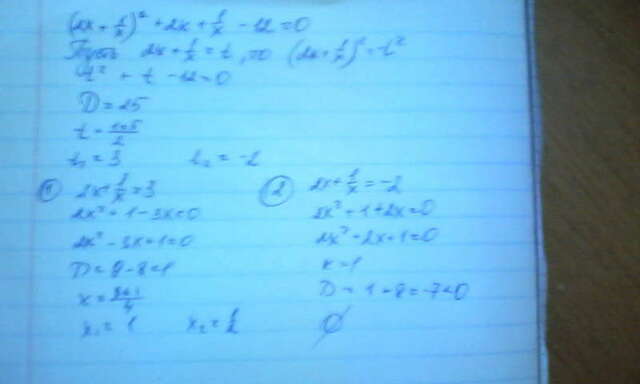 (2x + 1/x)² + 2x + 1/x - 12 = 0
Пусть 2x + 1/x = t, => (2x + 1/x)² = t²
t² + t - 12 = 0
D = 25
t₁ = 3 t₂ = -2
① 2x + 1/x = 3
2x² + 1 - 3x = 0
2x² - 3x + 1 = 0
D = 9 - 8 = 1
x = 3±1/4
x₁ = 1 x₂ = 1/2
② 2x + 1/x = -2
2x² + 1 + 2x = 0
2x² + 2x + 1 = 0
k = 1
D = 1 - 8 = -7 < 0
∅